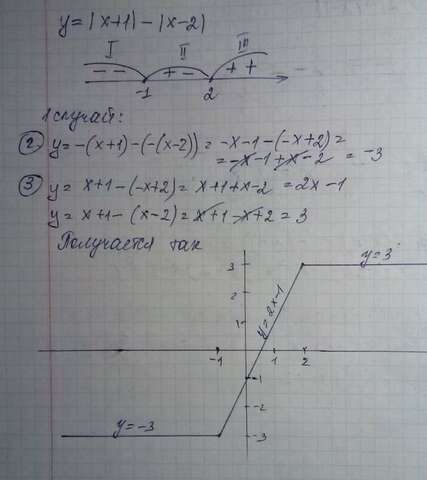 y=|x+1|-|x-2|
I II III
-- +- ++
-1 2
1 случай:
② y=-(x+1)-(-(x-2))= -x-1-(-x+2)=
=-x-1+x-2 = -3
③ y= x+1-(-x+2)= x+1+x-2 =2x-1
y= x+1-(x-2)=x+1-x+2=3
Получается так
3 y=3
2
1
y=2x-1
-1 1 2
-1
-2
y=-3 -3